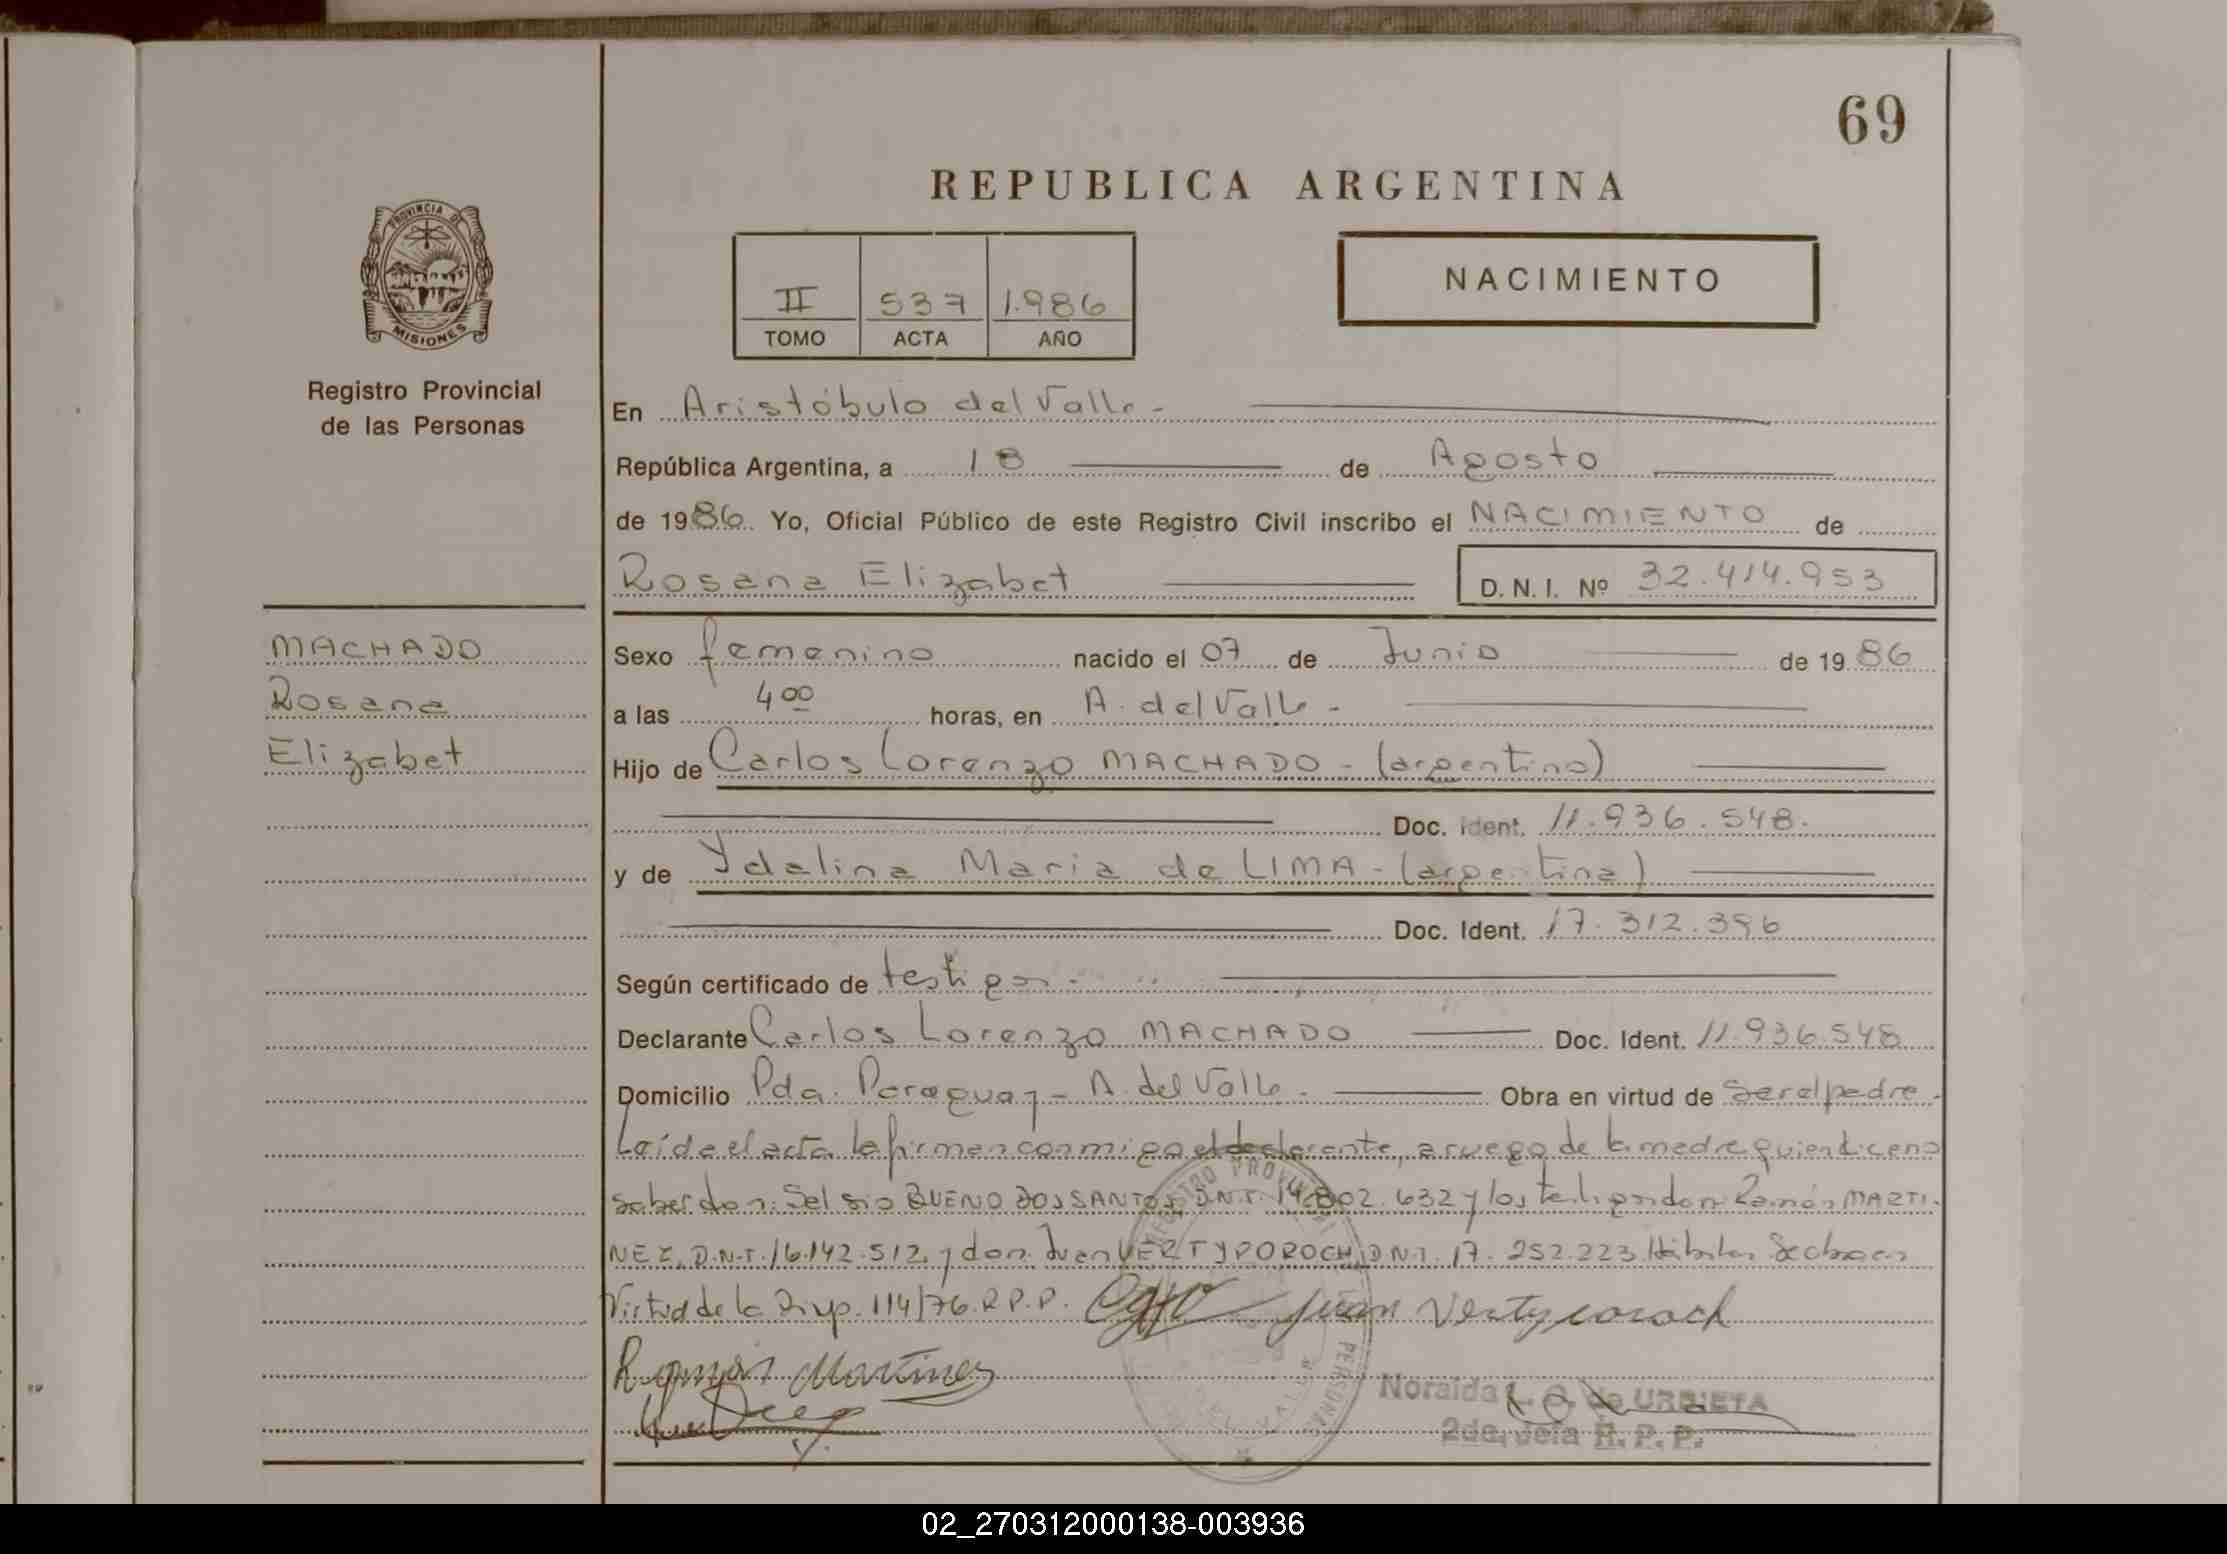 69
REPUBLICA ARGENTINA
PROVINCIA DE
MISIONES
Registro Provincial
de las Personas
NACIMIENTO
II 537 1.986
TOMO ACTA AÑO
En Aristóbulo del Valle -
República Argentina, a 18 de Agosto
de 1986. Yo, Oficial Público de este Registro Civil inscribo el NACIMIENTO de
Rosana Elizabet D. N. I. Nº 32.414.953
MACHADO
Rosana
Elizabet
Sexo femenino nacido el 07 de Junio de 19 86
a las 4 00 horas, en A. del Valle -
Hijo de Carlos Lorenzo MACHADO - (argentino)
Doc. Ident. 11.936.548.
y de Ydalina Maria de LIMA - (argentina)
Doc. Ident. 17.312.396
Según certificado de testigos.
Declarante Carlos Lorenzo MACHADO Doc. Ident. 11.936.548
Domicilio Pda. Paraguay - A. del Valle. Obra en virtud de ser el padre.
Leída el acta la firman conmigo el declarante, a ruego de la madre quien dice no
saber don: BUENO DOS SANTOS, D.N.I. 14.802.632 y los testigos don: Ramón MARTI-
NEZ, D.N.I. 16.142.512, y don: Juan VERTYPOROCH D.N.I. 17.252.223
Virtud de la Disp. 114/76. R.P.P. Juan Vertyporoch
Ramón Martinez
REGISTRO PROVINCIAL DE LAS PERSONAS
Noraida de URBIETA
2da. Jefa R. P. P.
02_270312000138-003936